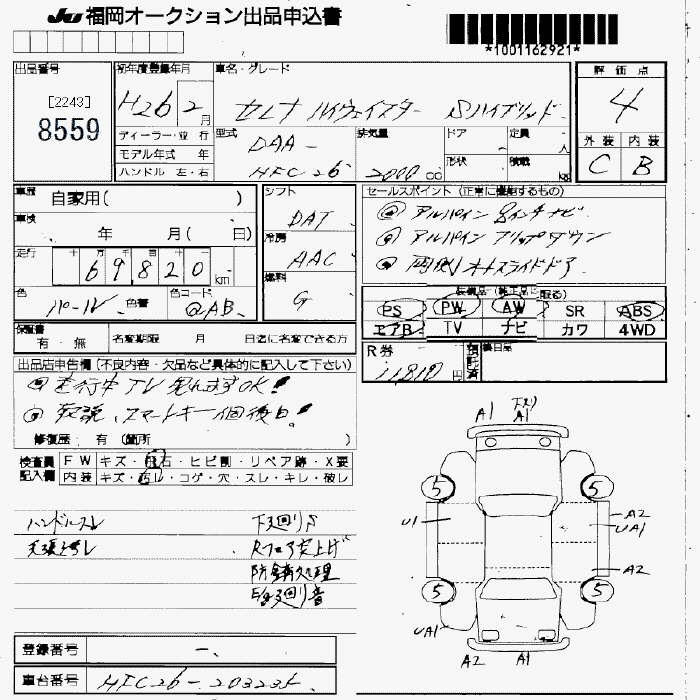 JU 福岡オークション出品申込書
*1001162921*
出品番号 [2243] 8559
初年度登録年月 H26 2月
車名・グレード セレナ ハイウェイスター Sハイブリッド
評価点 4
外装 C 内装 B
ディーラー・並行
モデル年式 年
ハンドル 左・右
型式 DAA- HFC26
排気量 2000 cc
ドア -
形状
定員 人
積載 kg
車歴 自家用( )
車検 年 月( 日)
走行 十万千百十 69,820 km
色 パール 色替
色コード QAB
シフト DAT
冷房 AAC
燃料 G
セールスポイント(正常に機能するもの)
◎ アルパイン 8インチナビ
◎ アルパイン フリップダウン
◎ 両側オートスライドドア
PS PW AW SR ABS
エアB TV ナビ カワ 4WD
保証書 有・無 名変期限 月 日迄に名変できる方
R券 預託済 11810円
後日品
出品店申告欄(不良内容・欠品など具体的に記入して下さい)
◎ 走行中TV見れますOK!
◎ 取説、スマートキー1個後日!
修復歴 有 (箇所
検査員記入欄
FW キズ・飛石・ヒビ割・リペア跡・X要
内装 キズ・汚レ・コゲ・穴・スレ・キレ・破レ
ハンドルスレ 下廻りサ
天張汚レ Rフロア突上げ
防錆処理
足廻り音
A1 下廻り A1
5 5
U1 A2 UA1
A2
5 5
UA1 A2 A1
登録番号 -
車台番号 HFC26-203235